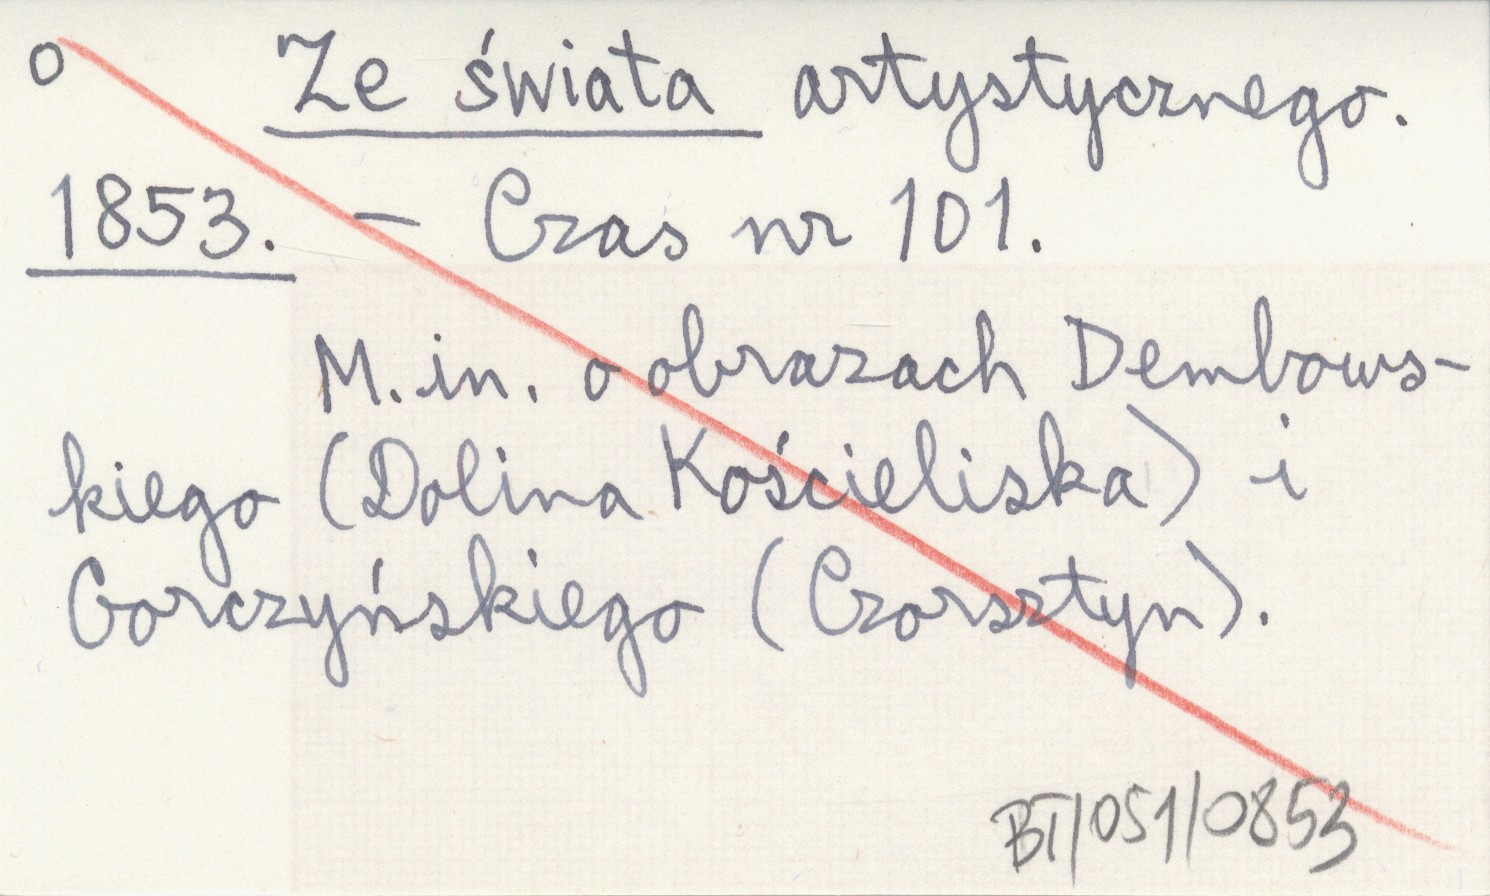 o Ze świata artystycznego.
1853. – Czas nr 101.
M. in. o obrazach Dembows-
kiego (Dolina Kościeliska) i
Gorczyńskiego (Czorsztyn).
BT/051/0853